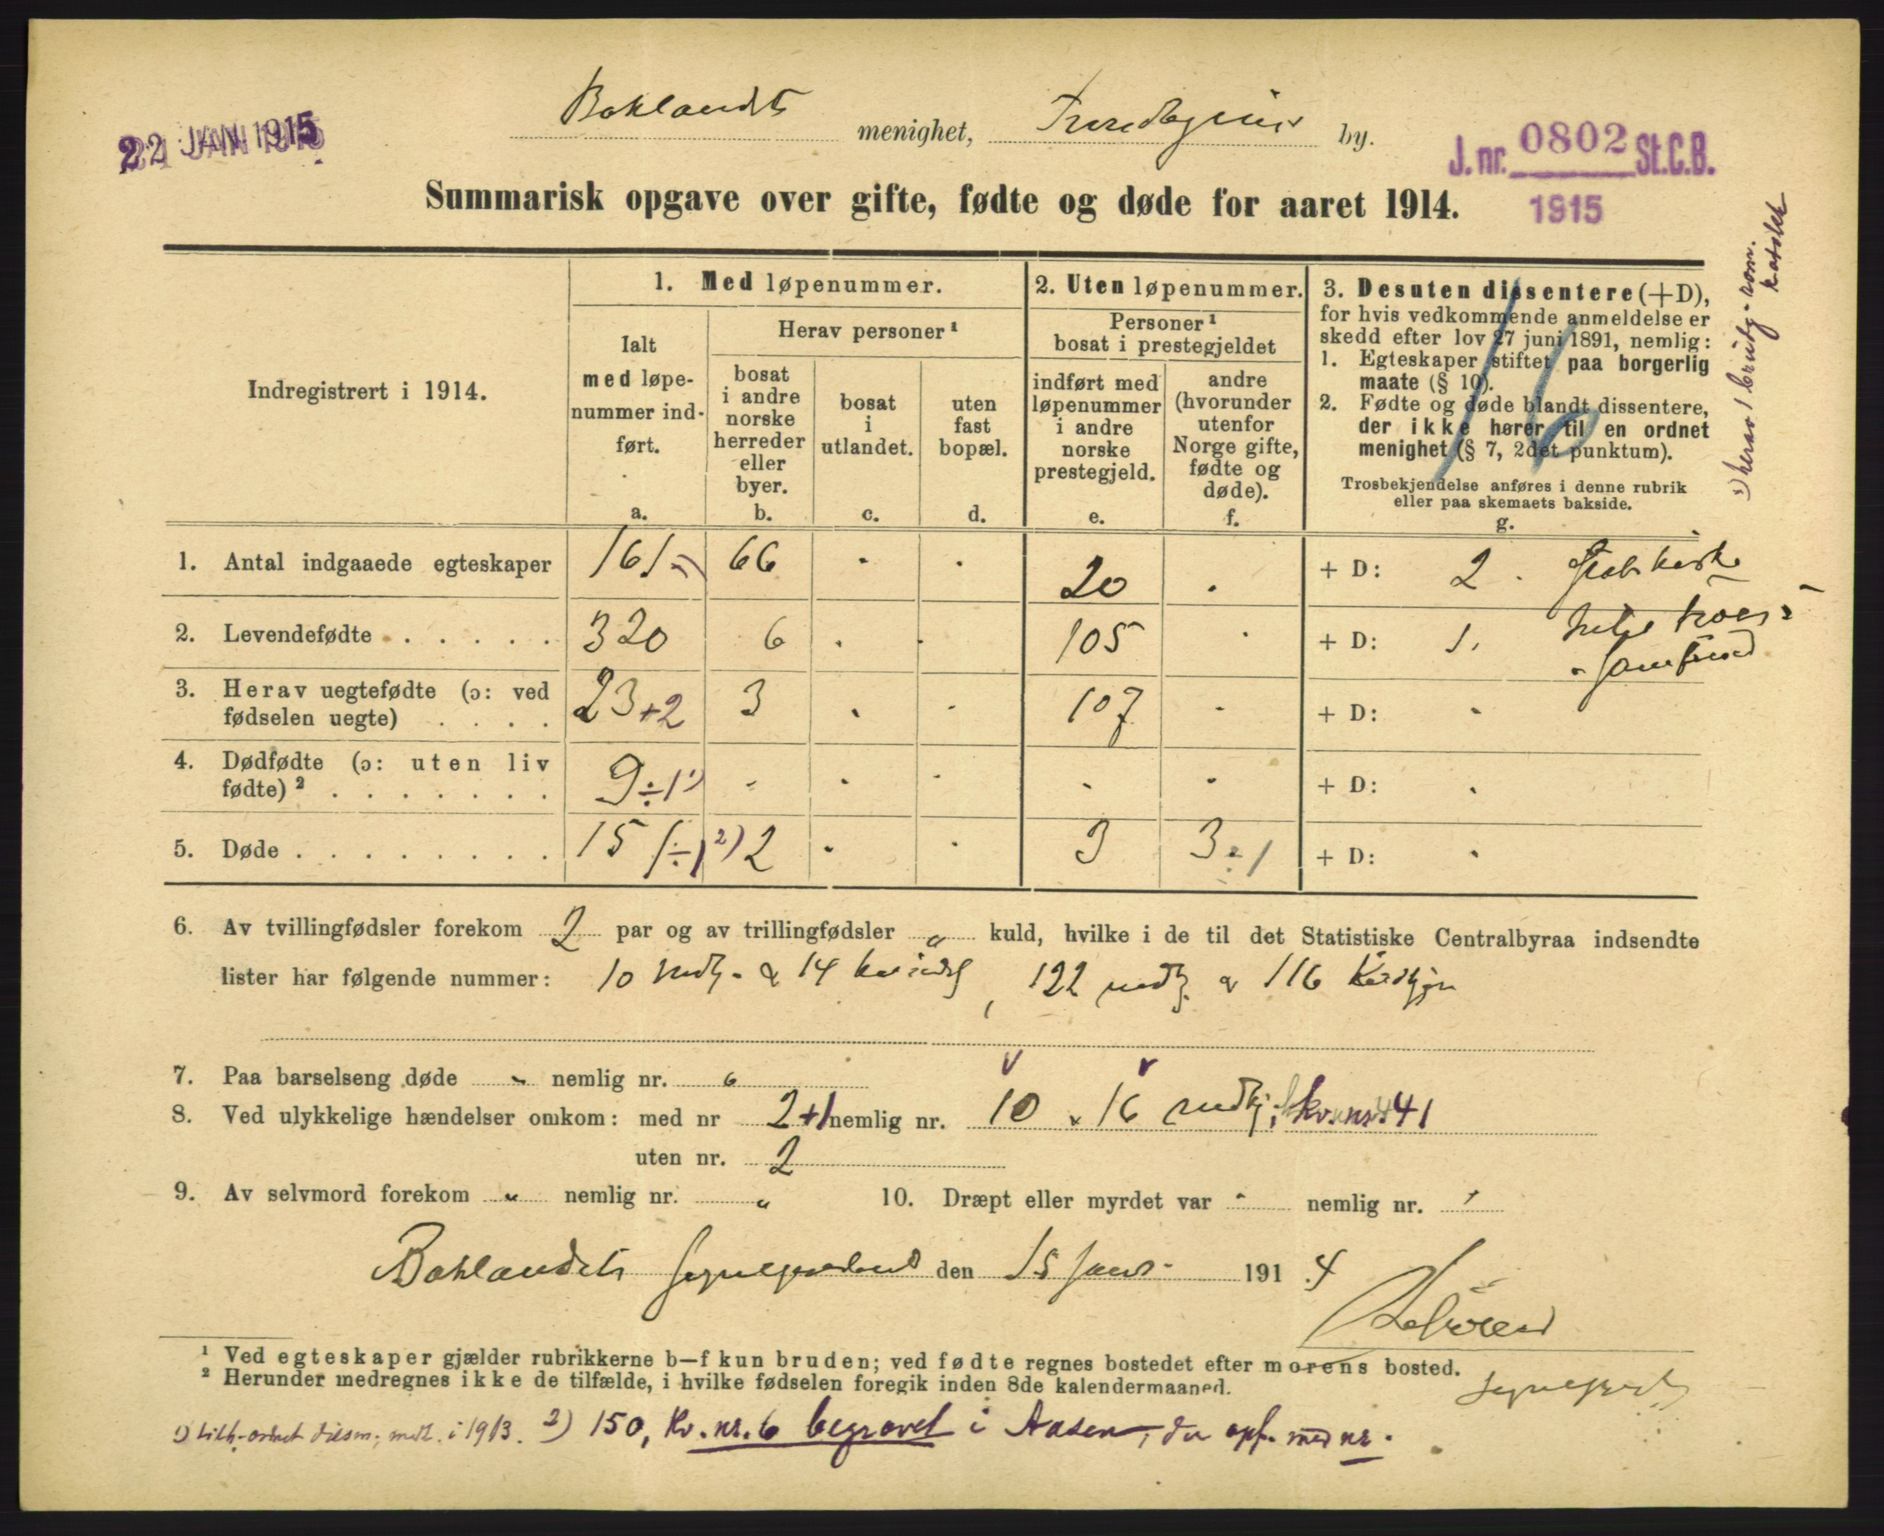 22 JAN 1915
Baklandets menighet, Trondhjems by.
J. nr. 0802 St.C.B.
1915
Summarisk opgave over gifte, fødte og døde for aaret 1914.
Indregistrert i 1914.
1. Med løpenummer.
Ialt
med løpe-
nummer ind-
ført.
a.
Herav personer ¹
bosat
i andre
norske
herreder
eller
byer.
b.
bosat
i
utlandet.
c.
uten
fast
bopæl.
d.
2. Uten løpenummer.
Personer ¹
bosat i prestegjeldet
indført med
løpenummer
i andre
norske
prestegjeld.
e.
andre
(hvorunder
utenfor
Norge gifte,
fødte og
døde).
f.
3. Desuten dissentere (+D),
for hvis vedkommende anmeldelse er
skedd efter lov 27 juni 1891, nemlig:
1. Egteskaper stiftet paa borgerlig
maate (§ 10).
2. Fødte og døde blandt dissentere,
der ikke hører til en ordnet
menighet (§ 7, 2det punktum).
Trosbekjendelse anføres i denne rubrik
eller paa skemaets bakside.
g.
1) herav 1 brudg. rom.
katolsk
1. Antal indgaaede egteskaper 161 66 . . 20 . + D: 2 . Statskirke
2. Levendefødte . . . . . 320 6 . . 105 . + D: 1.
3. Herav uegtefødte (ɔ: ved
fødselen uegte) . . . . 23+2 3 . . 107 . + D: .
4. Dødfødte (ɔ: uten liv
fødte) ² . . . . . . . 9÷1¹) . . . . . + D: .
5. Døde . . . . . . . . . 151÷1²) 2 . . 3 3÷1 + D: .
6. Av tvillingfødsler forekom 2 par og av trillingfødsler " kuld, hvilke i de til det Statistiske Centralbyraa indsendte
lister har følgende nummer: 10 mdkj. & 14 , 122 mdkj. & 116 Kvdkjøn
7. Paa barselseng døde " nemlig nr. "
8. Ved ulykkelige hændelser omkom: med nr 2+1 nemlig nr. 10 & 16 mdkj; kv. nr. 41
uten nr. 2
9. Av selvmord forekom " nemlig nr. " 10. Dræpt eller myrdet var " nemlig nr. "
Baklandets den 15 Janr. 1914
¹ Ved egteskaper gjælder rubrikkerne b—f kun bruden; ved fødte regnes bostedet efter morens bosted.
² Herunder medregnes ikke de tilfælde, i hvilke fødselen foregik inden 8de kalendermaaned.
Sogneprest
1) i 1913. 2) 150, Kv. nr. 6 begravet i Aasen, der opf. med nr.